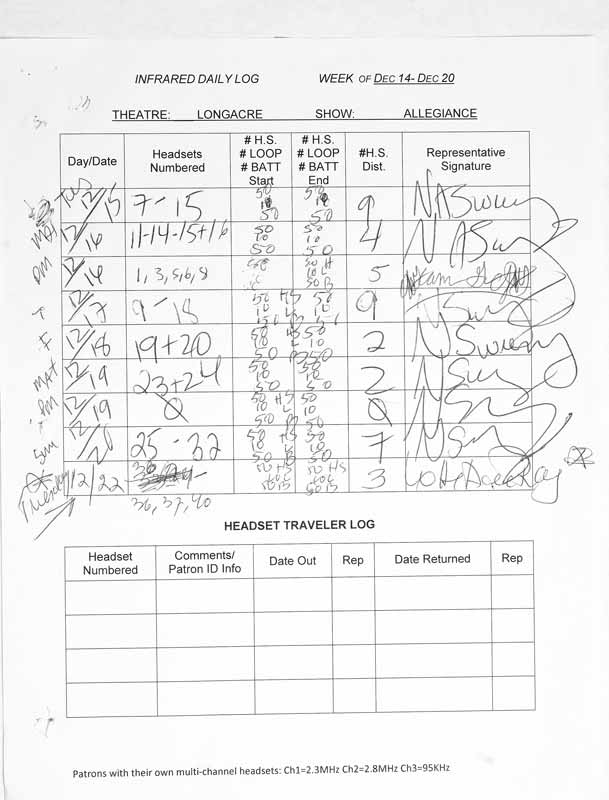 INFRARED DAILY LOG WEEK OF DEC 14- DEC 20
THEATRE: LONGACRE SHOW: ALLEGIANCE
Day/Date Headsets Numbered # H.S. # LOOP # BATT Start # H.S. # LOOP # BATT End #H.S. Dist. Representative Signature
Tues 12/15 7-15 50 10 50 50 10 50 9
MAT 12/16 11-14-15+16 50 10 50 50 10 50 4
PM 12/16 1, 3, 5, 6, 8 50 H 10 L 50 B 5
T 12/17 9-18 50 HS 50 9
F 12/18 19+20 50 10 50 50 10 50 2
MAT 12/19 23+24 50 10 50 50 10 50 2
PM 12/19 Ø 50 HS 10 L 50 50 10 50 Ø
Sun 12/20 25-32 50 HS 10 L 50 B 50 10 50 7
Tuesday 12/22 36, 37, 40 50 HS 50 B 50 HS 50 B 3
HEADSET TRAVELER LOG
Headset Numbered Comments/ Patron ID Info Date Out Rep Date Returned Rep
Patrons with their own multi-channel headsets: Ch1=2.3MHz Ch2=2.8MHz Ch3=95KHz